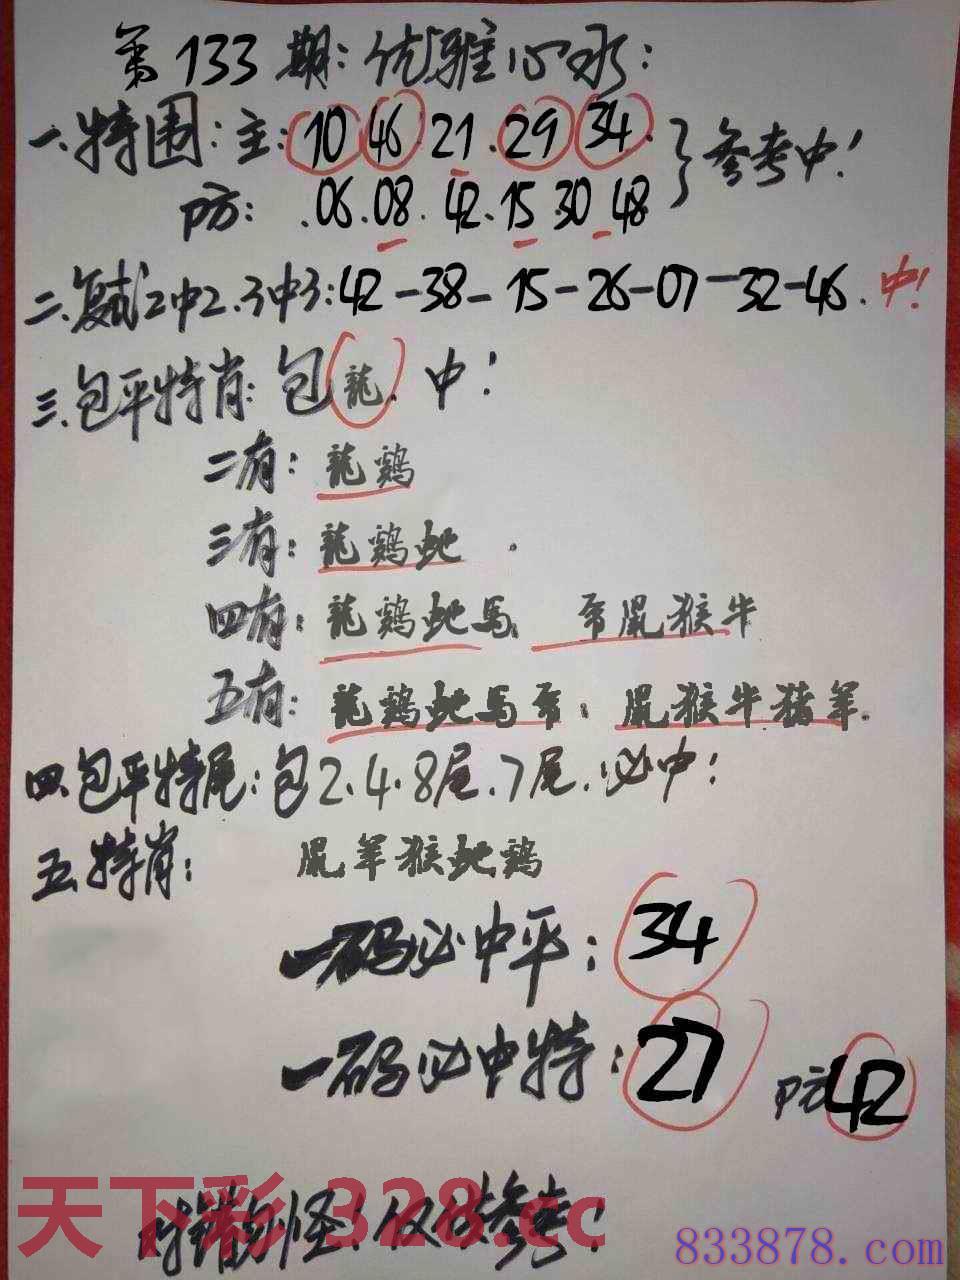 第133期:优雅心水:
一.特围:主:10 46 21.29 34.
防: .06.08.42.15.30.48
}参考中!
二.复式2中2.3中3:42-38-15-26-07-32-46.中!
三.包平特肖:包龍.中!
二有:龍鷄
三有:龍鷄蛇.
四有:龍鷄蛇馬、帍鼠猴牛
五有:龍鷄蛇馬帍;鼠猴牛猪羊.
四.包平特尾:包2.4.8尾.7尾.必中!
五.特肖: 鼠羊猴蛇鷄
一码必中平:34
一码必中特:27 防42
对错勿怪!仅供参考!
天下彩 328.cc
833878.com